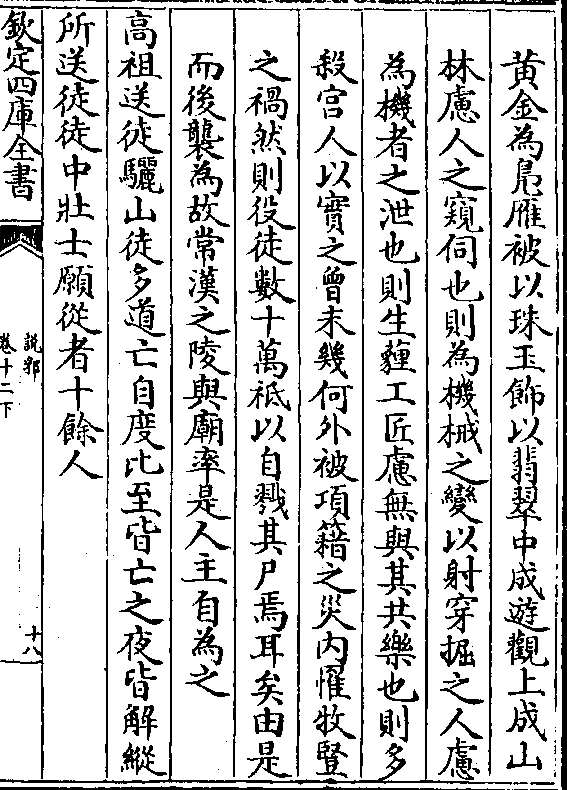 黄金為鳬雁被以珠玉飾以翡翠中成遊觀上成山
林慮人之窺伺也則為機械之變以射穿掘之人慮
為機者之泄也則生薶工匠慮無與其共樂也則多
殺宫人以實之曾未幾何外被項籍之災内懼牧豎
之禍然則役徒數十萬祗以自戮其尸焉耳矣由是
而後襲為故常漢之陵與廟率是人主自為之
高祖送徒驪山徒多道亡自度比至皆亡之夜皆解縱
所送徒徒中壯士願從者十餘人
欽定四庫全書
說郛
卷十二下
十八